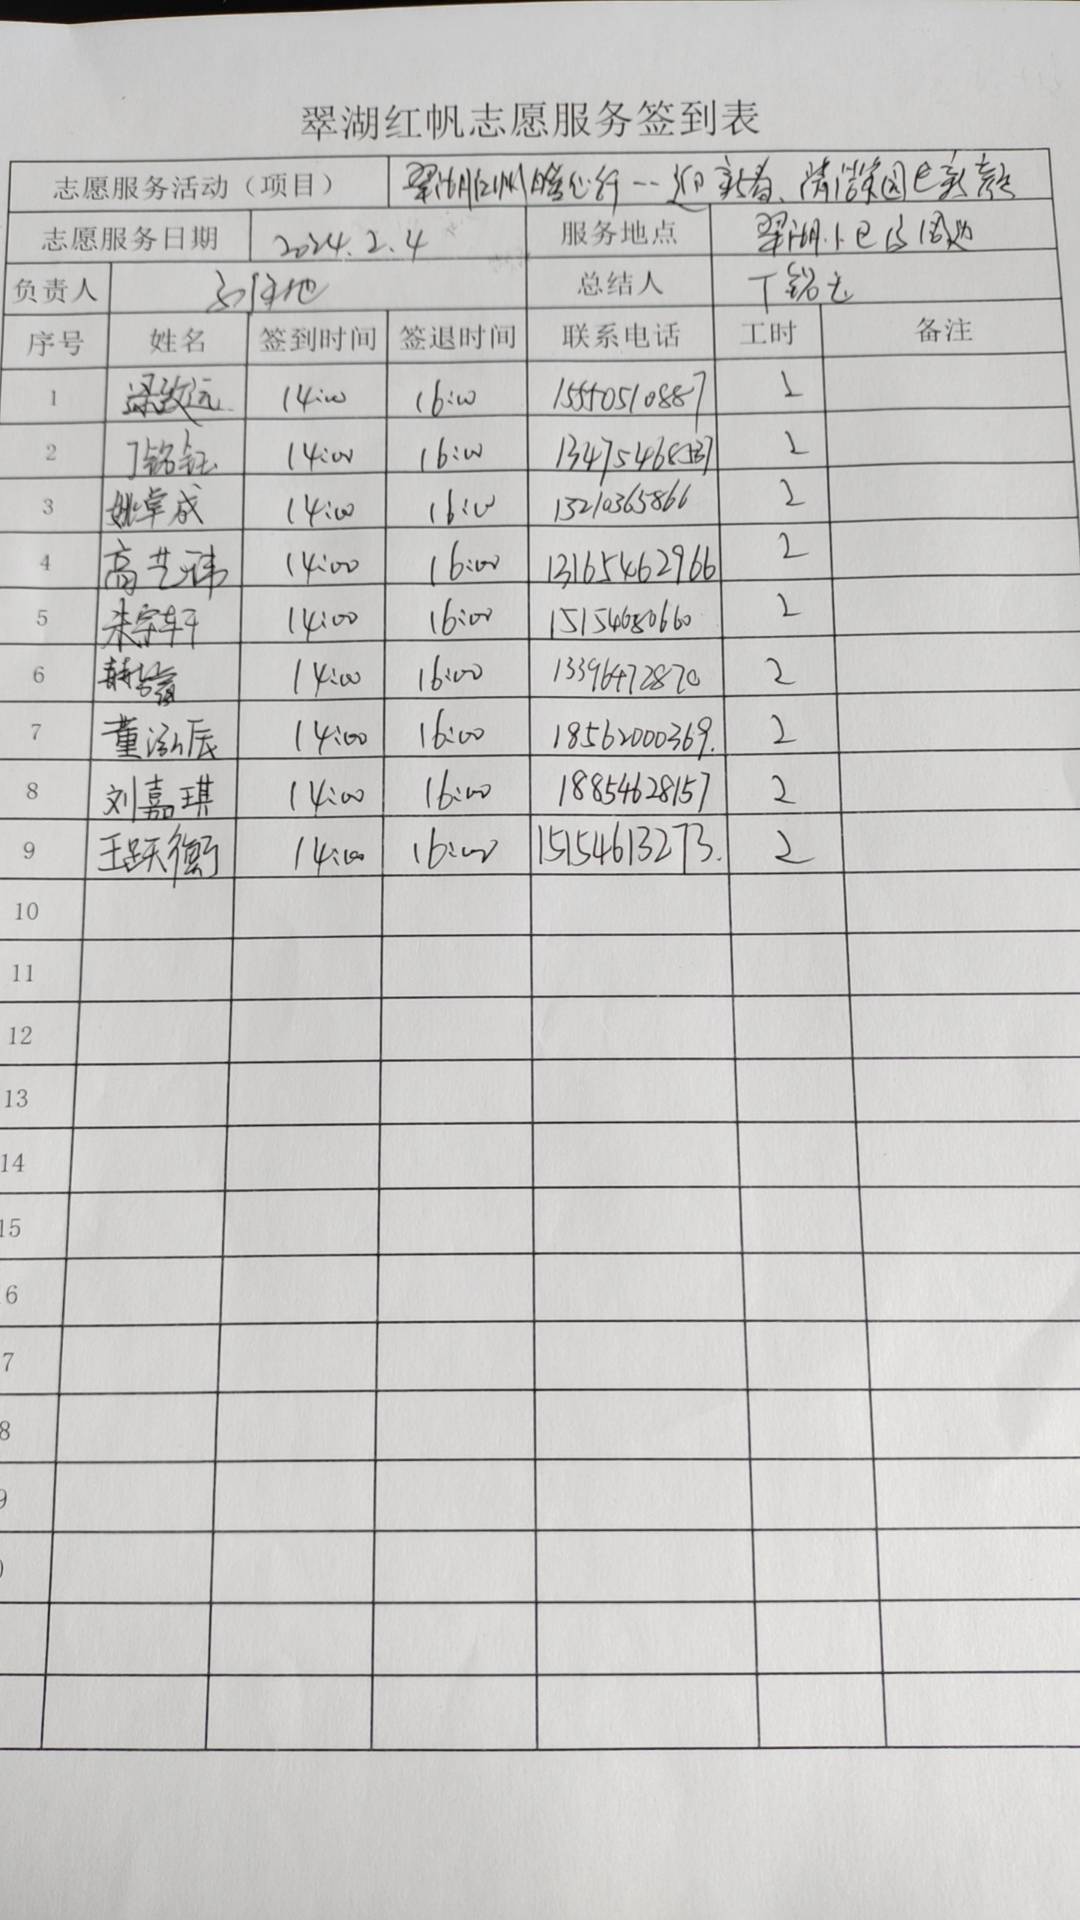 翠湖红帆志愿服务签到表
志愿服务活动（项目） 翠湖红帆暖心行--迎新春、清洁家园已新意
志愿服务日期 2024.2.4 服务地点 翠湖小区及周边
负责人 总结人 丁铭钰
序号 姓名 签到时间 签退时间 联系电话 工时 备注
1 梁致远 14:00 16:00 15550510887 2
2 丁铭钰 14:00 16:00 2
3 姚卓成 14:00 16:00 13210365866 2
4 高艺玮 14:00 16:00 13165462966 2
5 朱宗轩 14:00 16:00 15154680660 2
6 14:00 16:00 13396472870 2
7 董泓辰 14:00 16:00 18562000369. 2
8 刘嘉琪 14:00 16:00 18854628157 2
9 王跃衡 14:00 16:00 15154613273. 2
10
11
12
13
14
15
6
7
8
9